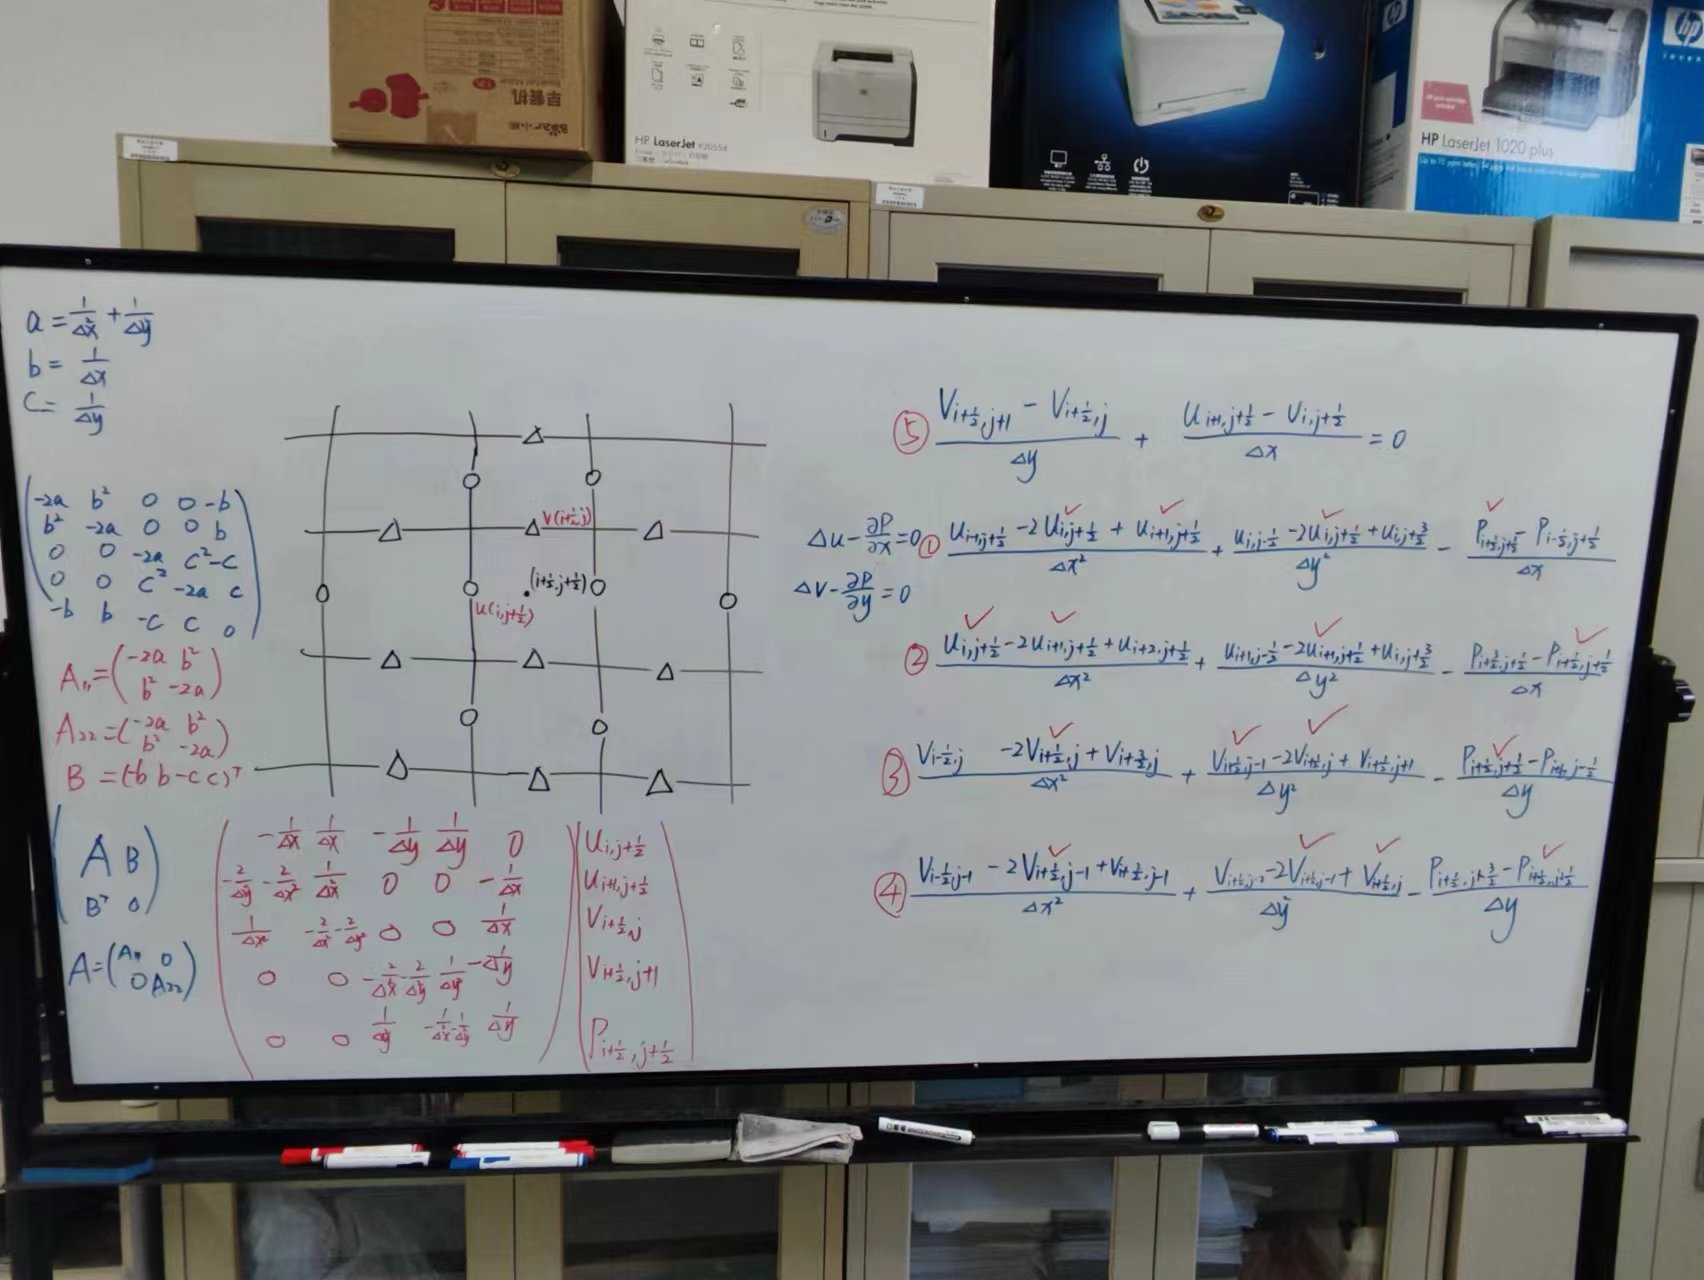 早餐机
HP LaserJet P2055d
HP LaserJet 1020 plus
hp
a = 1/Δx² + 1/Δy²
b = 1/Δx
C = 1/Δy
-2a b² 0 0 -b
b² -2a 0 0 b
0 0 -2a C² -C
0 0 C² -2a C
-b b -C C 0
A₁₁ = (-2a b²
b² -2a)
A₂₂ = (-2a b²
b² -2a)
B = (-b b -c c)ᵀ
(A B
Bᵀ 0)
A = (A₁₁ 0
0 A₂₂)
V(i+½,j)
(i+½,j+½)
u(i,j+½)
-1/Δx 1/Δx -1/Δy 1/Δy 0
-2/Δy² -2/Δx² 1/Δx² 0 0 -1/Δx
1/Δx² -2/Δx² -2/Δy² 0 0 1/Δx
0 0 -2/Δx² -2/Δy² 1/Δy² -1/Δy
0 0 1/Δy² -1/Δx² -1/Δy² 1/Δy
u i,j+½
u i+1,j+½
V i+½,j
V i+½,j+1
P i+½,j+½
⑤ (V i+½,j+1 - V i+½,j)/Δy + (u i+1,j+½ - V i,j+½)/Δx = 0
Δu - ∂P/∂x = 0
Δv - ∂P/∂y = 0
① (u i-1,j+½ - 2u i,j+½ + u i+1,j+½)/Δx² + (u i,j-½ - 2u i,j+½ + u i,j+3/2)/Δy² - (P i+½,j+½ - P i-½,j+½)/Δx
② (u i,j+½ - 2u i+1,j+½ + u i+2,j+½)/Δx² + (u i+1,j-½ - 2u i+1,j+½ + u i,j+3/2)/Δy² - (P i+3/2,j+½ - P i+½,j+½)/Δx
③ (V i-½,j - 2V i+½,j + V i+3/2,j)/Δx² + (V i+½,j-1 - 2V i+½,j + V i+½,j+1)/Δy² - (P i+½,j+½ - P i+½,j-½)/Δy
④ (V i-½,j-1 - 2V i+½,j-1 + V i+3/2,j-1)/Δx² + (V i+½,j-2 - 2V i+½,j-1 + V i+½,j)/Δy² - (P i+½,j+3/2 - P i+½,j+½)/Δy